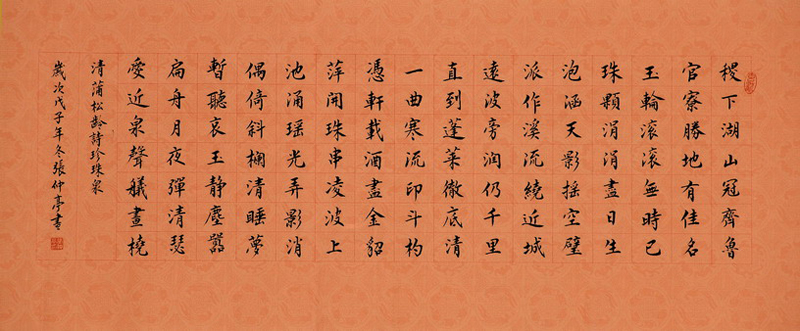 稷下湖山冠齊魯
官寮勝地有佳名
玉輪滾滾無時已
珠顆涓涓盡日生
泡涵天影摇空壁
派作溪流繞近城
遠波旁润仍千里
直到蓬莱徹底清
一曲寒流印斗杓
憑軒載酒盡金貂
萍開珠串凌波上
池涌瑶光弄影消
偶倚斜欄清睡夢
暫聽哀玉静塵囂
扁舟月夜彈清瑟
愛近泉聲艤畫橈
清蒲松齡詩珍珠泉
歲次戊子年冬張仲亭書